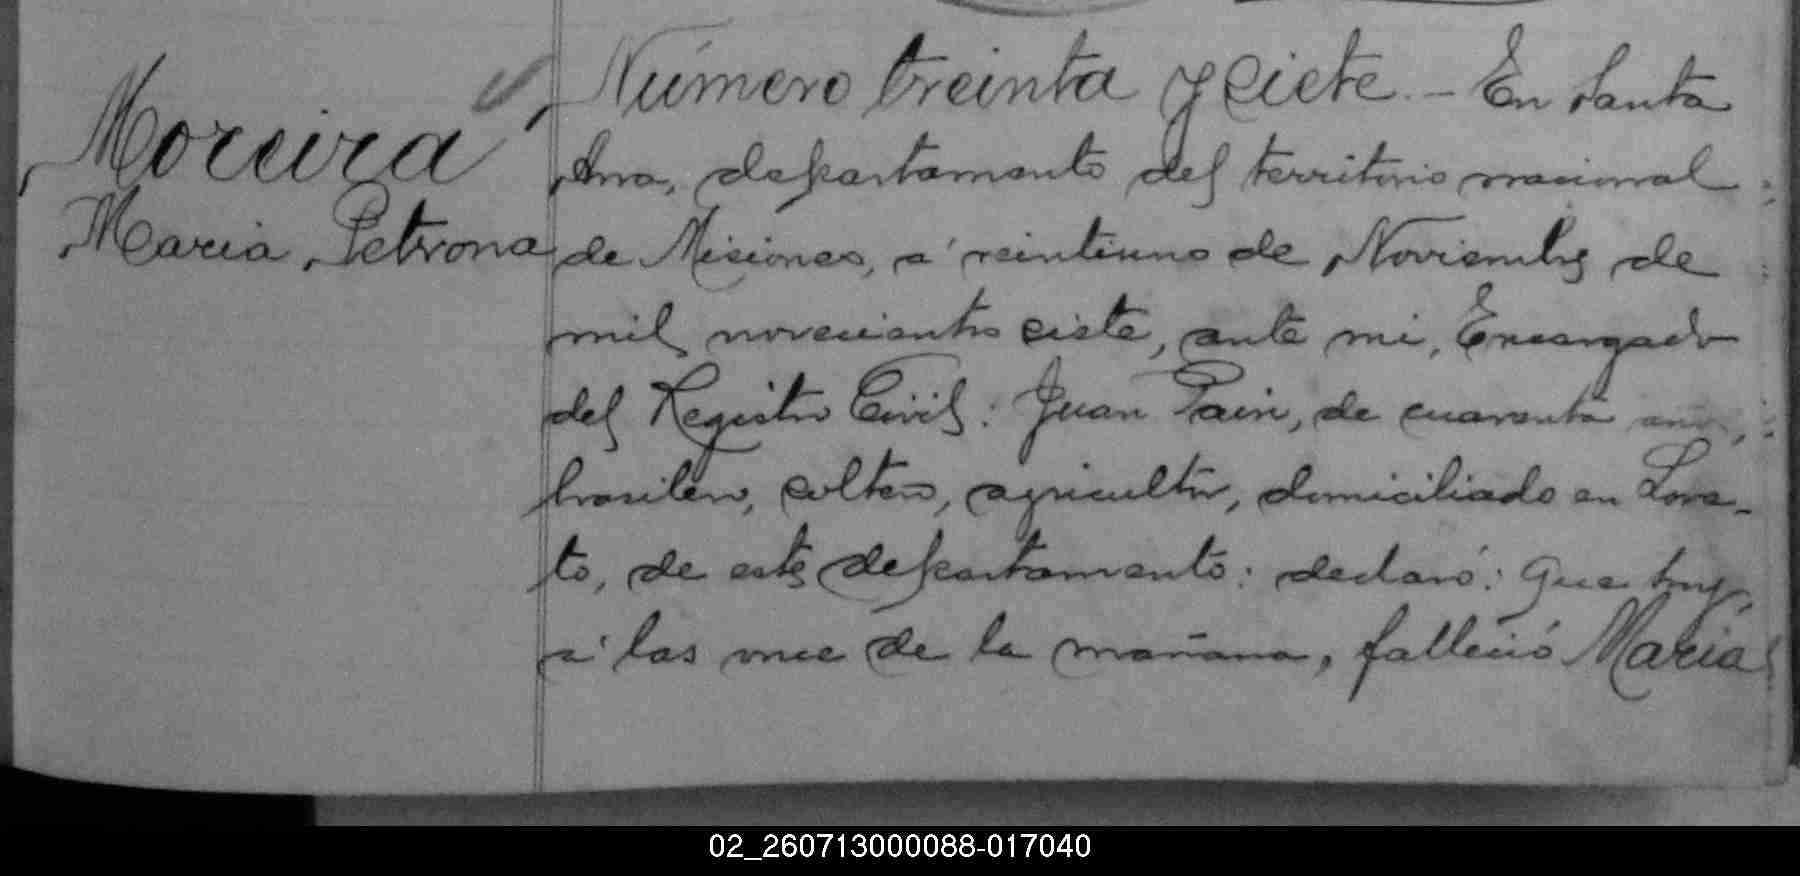 Moreira
Maria Petrona
Número treinta y siete. - En Santa
Ana, departamento del territorio nacional
de Misiones, á veintiuno de Noviembre de
mil novecientos siete, ante mi, Encargado
del Registro Civil: Juan Pain, de cuarenta años,
brasilero, soltero, agricultor, domiciliado en Lore-
to, de este departamento: declaró: Que hoy,
á las once de la mañana, falleció Maria
02_260713000088-017040